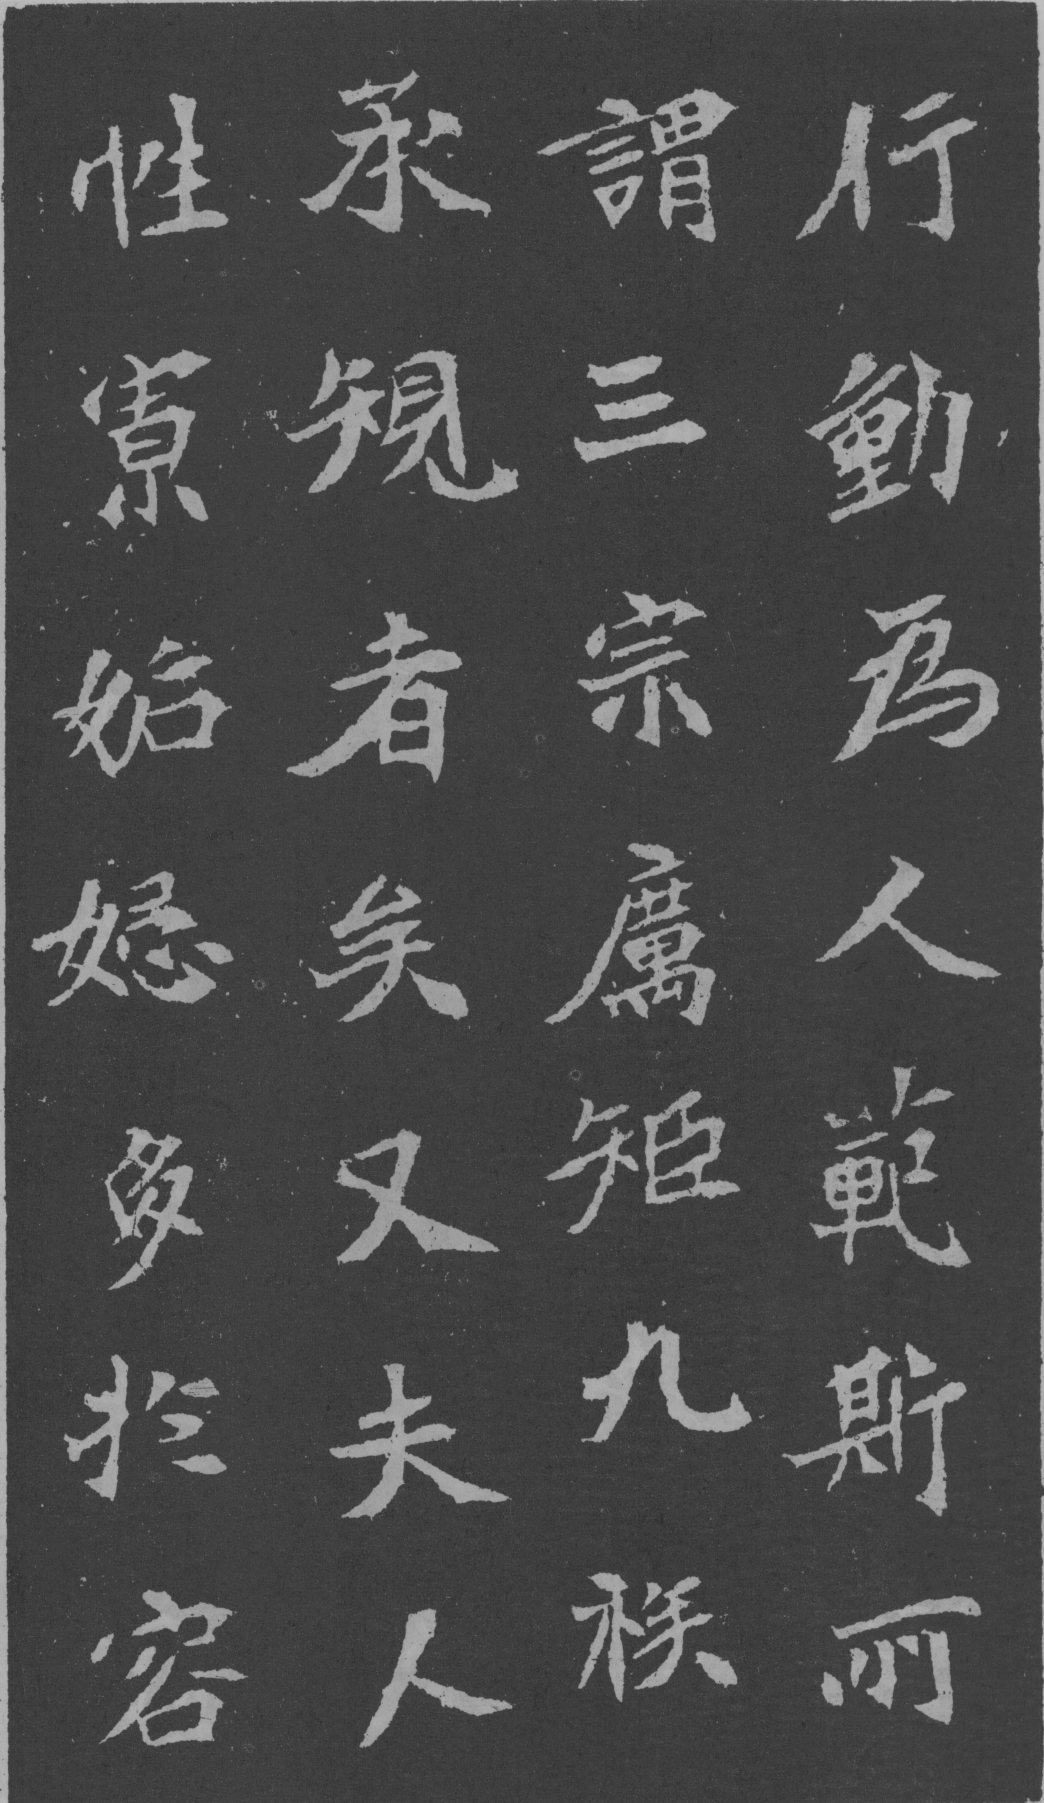 行動為人範斯所
謂三宗厲矩九族
承規者矣又夫人
性寡妬忌多於容